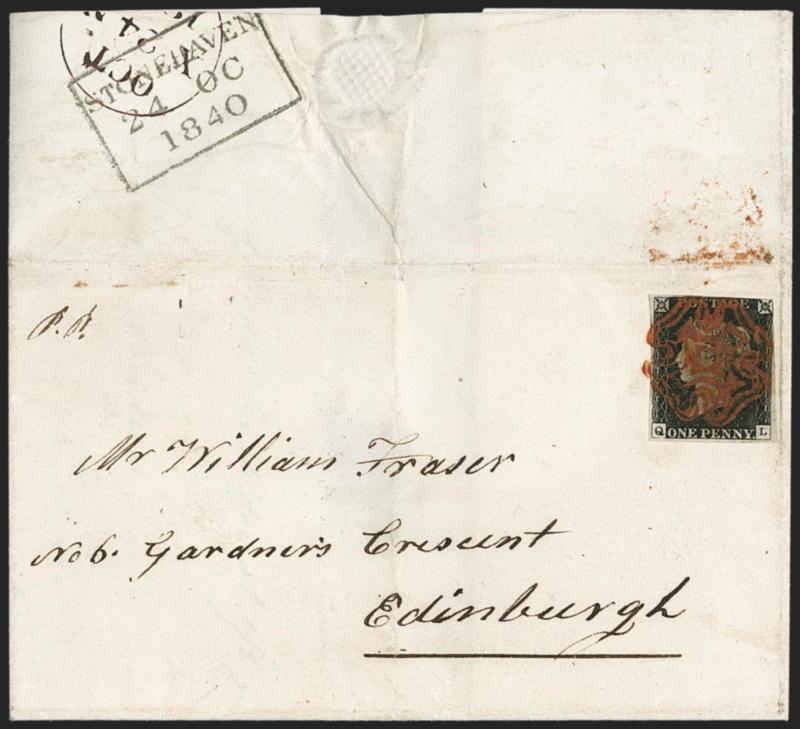 STONEHAVEN
24 OC
1840
P.P.
POSTAGE
Q ONE PENNY. L
Mr William Fraser
No 6. Gardner's Crescent
Edinburgh